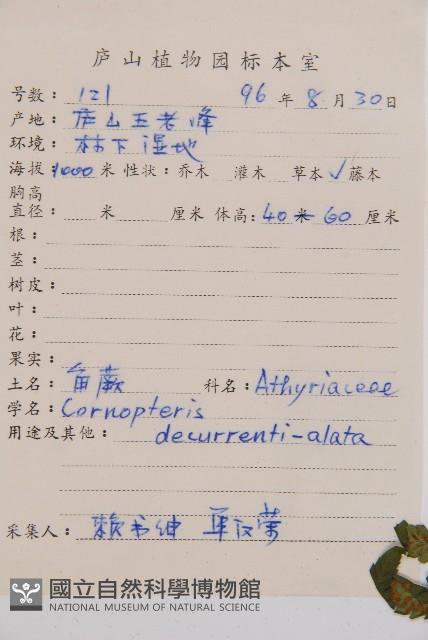 庐山植物园标本室
号数：121 96年8月30日
产地：庐山五老峰
环境：林下湿地
海拔：1000米 性状：乔木 灌木 草本✓藤本
胸高
直径： 米 厘米 体高：40米60厘米
根：
茎：
树皮：
叶：
花：
果实：
土名：角蕨 科名：Athyriaceae
学名：Cornopteris
用途及其他： decurrenti-alata
采集人：赖书绅 单汉荣
國立自然科學博物館
NATIONAL MUSEUM OF NATURAL SCIENCE